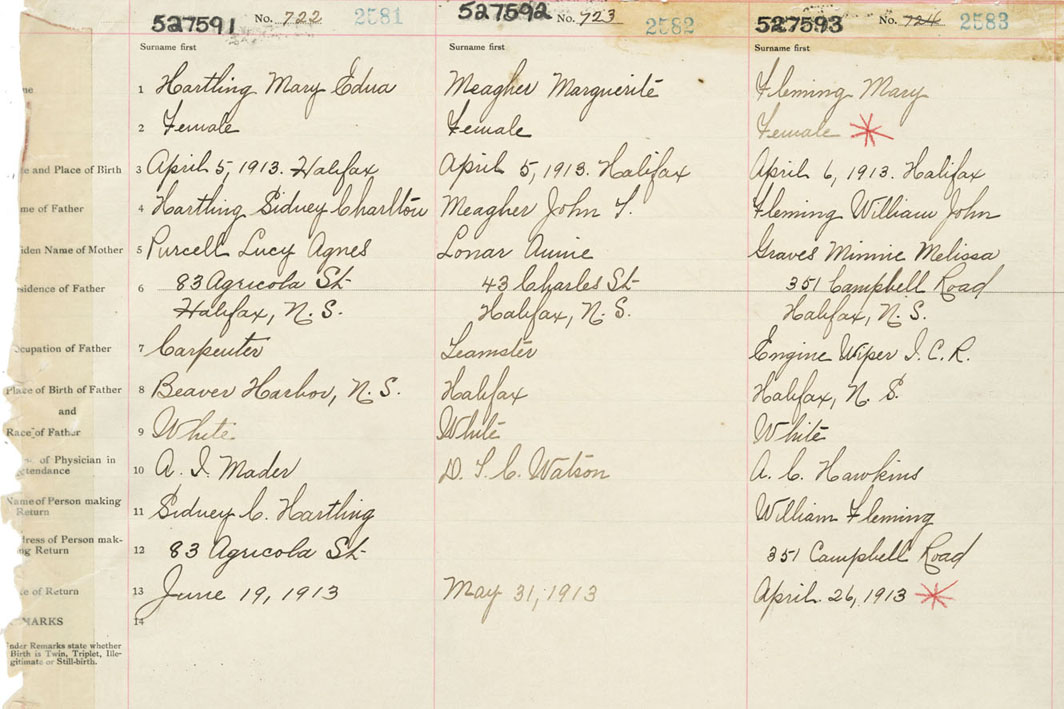 527591 No. 722 2581 527592 No. 723 2582 527593 No. 724 2583
Surname first Surname first Surname first
me 1 Hartling Mary Edna Meagher Marguerite Fleming Mary
2 Female Female Female
te and Place of Birth 3 April 5, 1913. Halifax April 5, 1913. Halifax April 6, 1913. Halifax
me of Father 4 Hartling Sidney Charlton Meagher John T. Fleming William John
iden Name of Mother 5 Purcell Lucy Agnes Lonar Annie Graves Minnie Melissa
sidence of Father 6 83 Agricola St 43 Charles St 351 Campbell Road
Halifax, N.S. Halifax, N.S. Halifax, N.S.
ccupation of Father 7 Carpenter Teamster Engine Wiper I.C.R.
Place of Birth of Father 8 Beaver Harbor, N.S. Halifax Halifax, N.S.
and
Race of Father 9 White White White
of Physician in
ttendance 10 A. I. Mader D. T. C. Watson A. C. Hawkins
Name of Person making
Return 11 Sidney C. Hartling William Fleming
dress of Person mak-
ng Return 12 83 Agricola St 351 Campbell Road
te of Return 13 June 19, 1913 May 31, 1913 April 26, 1913
MARKS 14
nder Remarks state whether
Birth is Twin, Triplet, Ille-
gitimate or Still-birth.